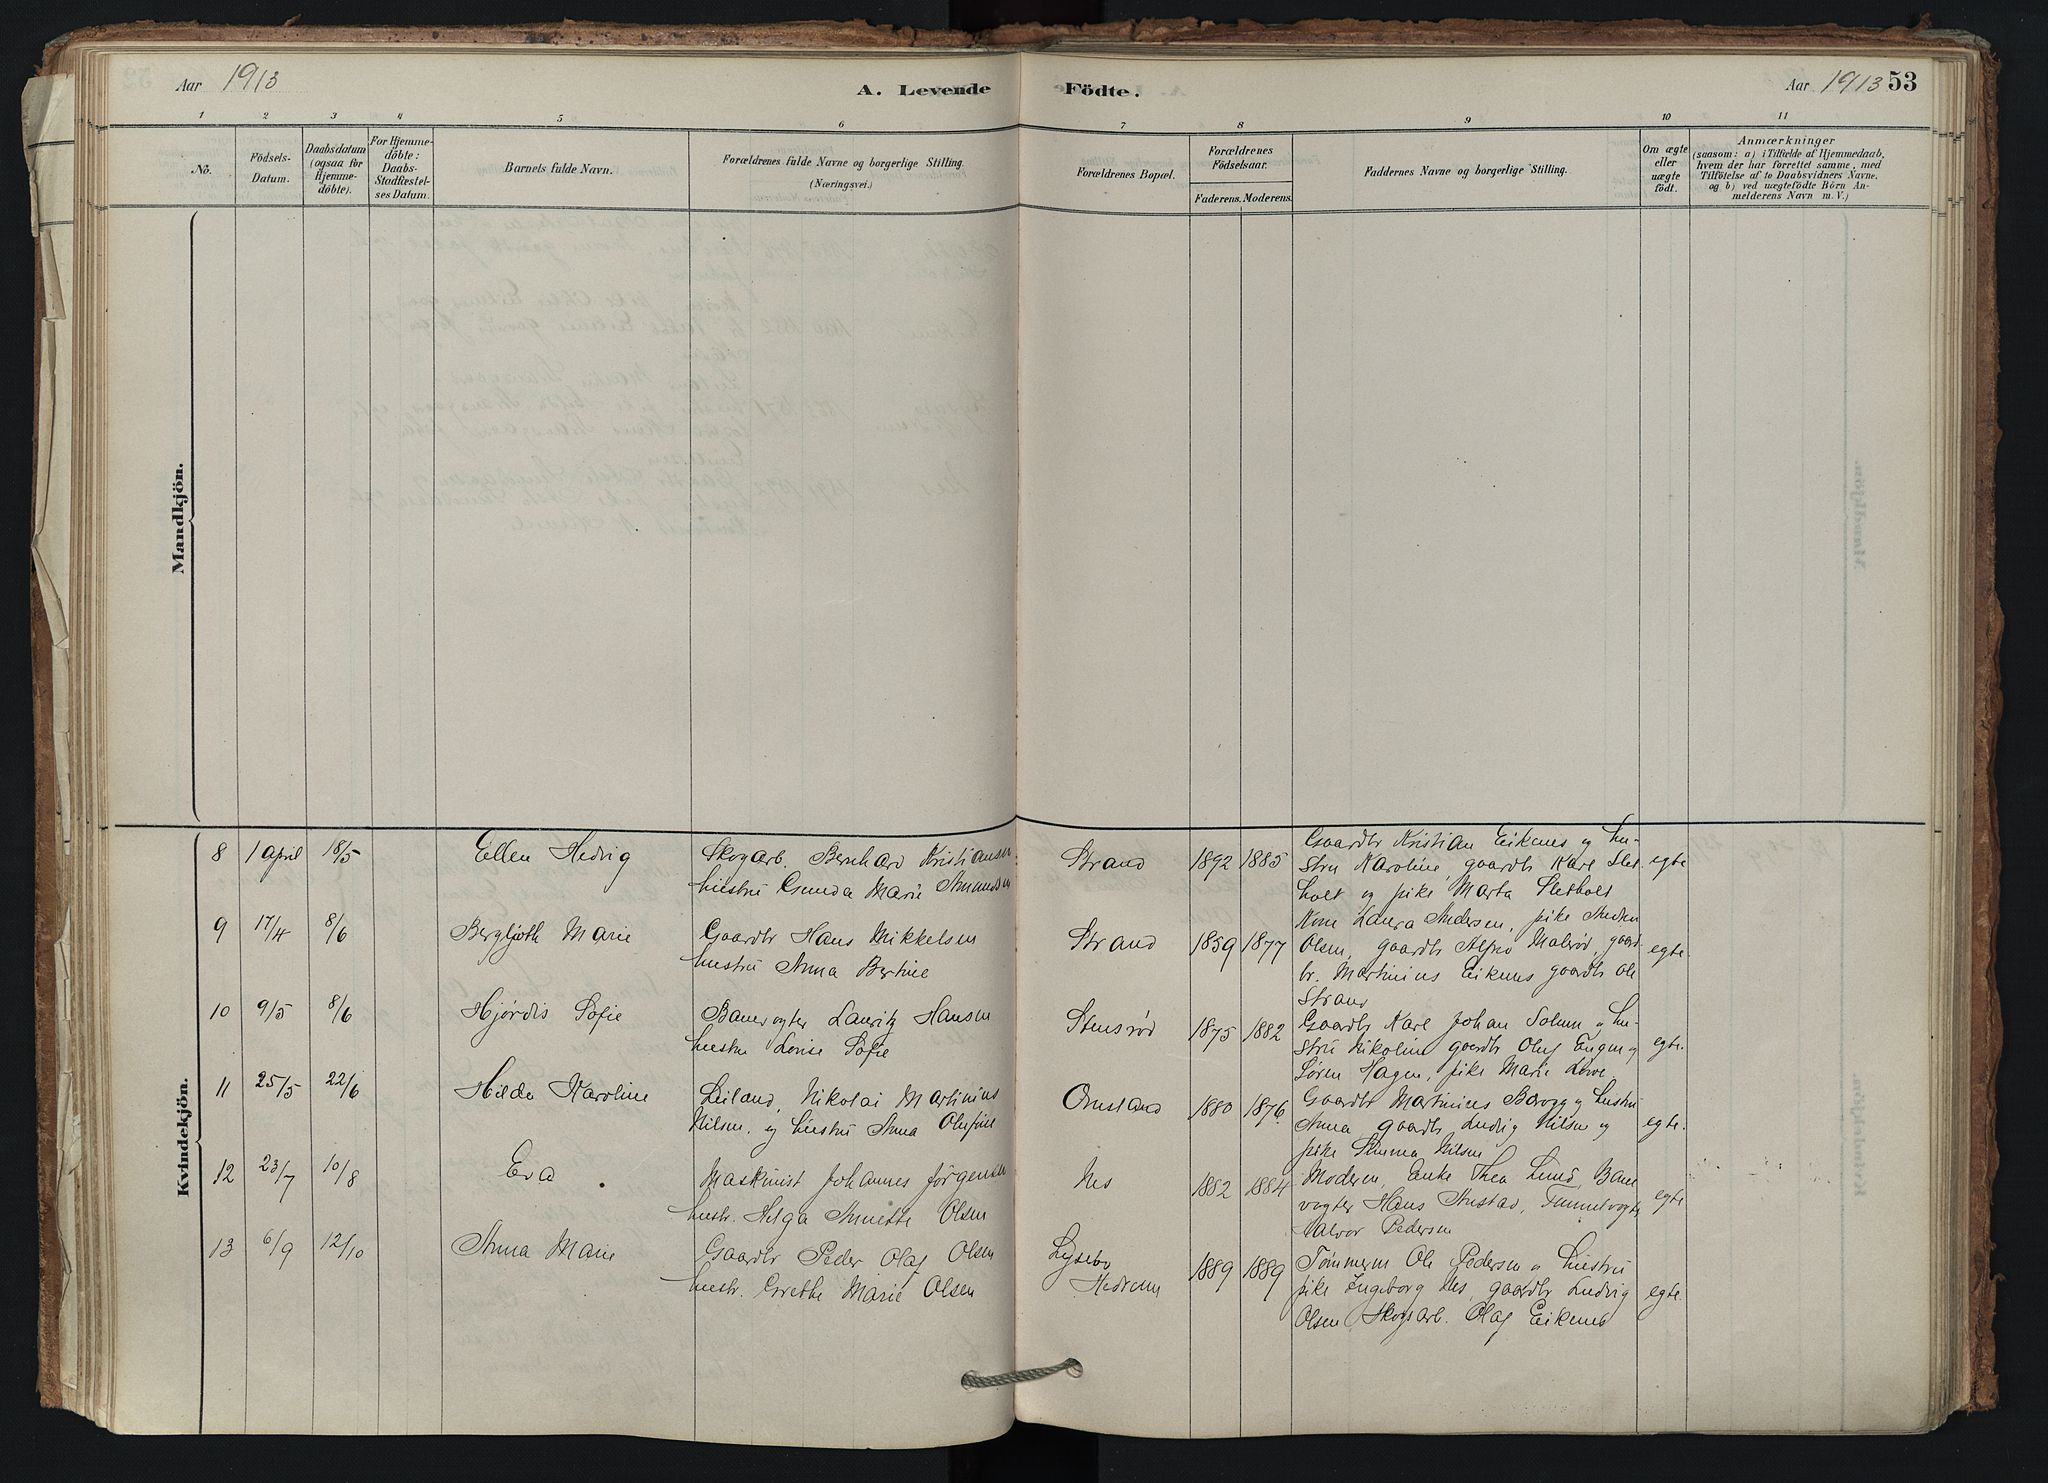 Aar 1913
A. Levende
Födte.
Aar 1913 53
1 2 3 4 5 6 7 8 9 10 11
No.
Födsels-
Datum.
Daabsdatum
(ogsaa for
Hjemme-
döbte).
For Hjemme-
döbte:
Daabs-
Stadfæstel-
ses Datum.
Barnets fulde Navn.
Forældrenes fulde Navne og borgerlige Stilling.
(Næringsvei.)
Forældrenes Bopæl.
Forældrenes
Födselsaar.
Faderens. Moderens.
Faddernes Navne og borgerlige Stilling.
Om ægte
eller
uægte
födt.
Anmærkninger
(saasom: a) i Tilfælde af Hjemmedaab,
hvem der har forrettet samme, med
Tilföielse af to Daabsvidners Navne,
og b) ved uægtefödte Börn An-
melderens Navn m. V.)
Mandkjön.
Kvindekjön.
8 1 April 18/5 Ellen Hedvig
Skogarb. Bernhard Kristiansen
hustru Gunda Marie Amundsen
Strand 1892 1885
Gaardbr Kristian Eikenes og hu-
stru Karoline, gaardbr Karl Slet
holt og pike Marta Sletholt
egte
9 17/4 8/6 Bergljoth Marie
Gaardbr Hans Mikkelsen
hustru Anna Bertine
Strand 1859 1877
Kone Laura Andersen, pike
Olsen, gaardbr Alfred Malerød, gaard
br. Martinius Eikenes gaardbr Ole
Strand
egte.
10 9/5 8/6 Hjørdis Sofie
Banevogter Lauritz Hansen
hustru Lovise Sofie
Stensrød 1875 1882
Gaardbr Karl Johan Solum og hu-
stru Nikoline gaardbr Oluf Engen og
Søren Hagen, pike Marie Løve.
egte.
11 25/5 22/6 Hilda Karoline
Leiland, Nikolai Martinius
Nilsen, og hustru Anna Olufine
Omsland 1880 1876
Gaardbr Martinius og hustru
Anna gaardbr Ludvig Nilsen og
pike Nilsen
egte.
12 23/7 10/8 Eva
Maskinist Johannes Jørgensen
hustr. Helga Annette Olsen
Nes 1882 1884
Moderen, Enke Thea Lund, Bane
vogter Hans Anstad, Tunnelvogter
Halvor Pedersen
egte
13 6/9 12/10 Anna Marie
Gaardbr Peder Olaf Olsen
hustr. Grethe Marie Olsen
Lysebo
Hedrum
1889 1889
Tømmerm Ole Pedersen og hustru
pike Ingeborg Nes, gaardbr Ludvig
Olsen Skogsarb. Olaf Eikenes
egte.